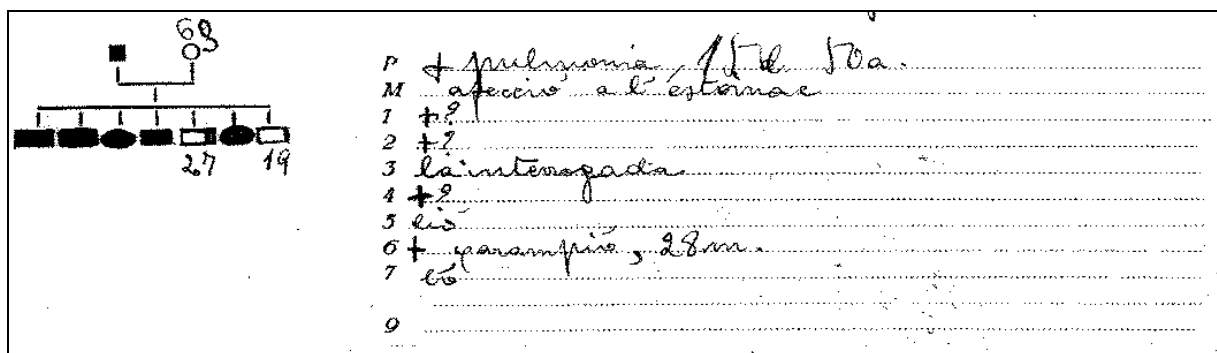 69
27 19
P + pulmonia, 15 d. 50 a.
M afecció a l'estómac
1 +?
2 +?
3 la interrogada
4 +?
5
6 + xarampió, 28 m.
7 bó
9